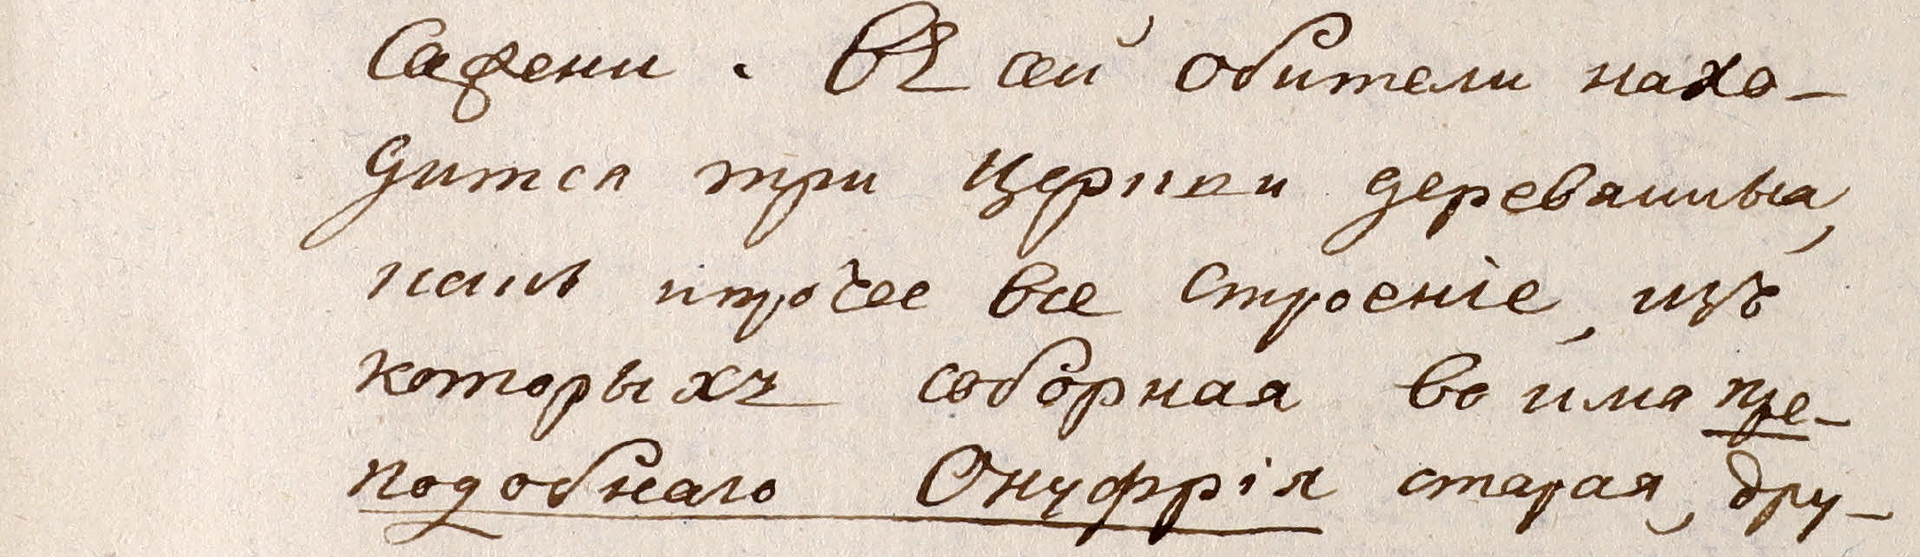 Сафени. Въ сей обители нахо-
дится три Церкви деревянныя,
какъ прочее все строеніе, изъ
которыхъ соборная во имя пре-
подобнаго Онуфрія старая, дру-